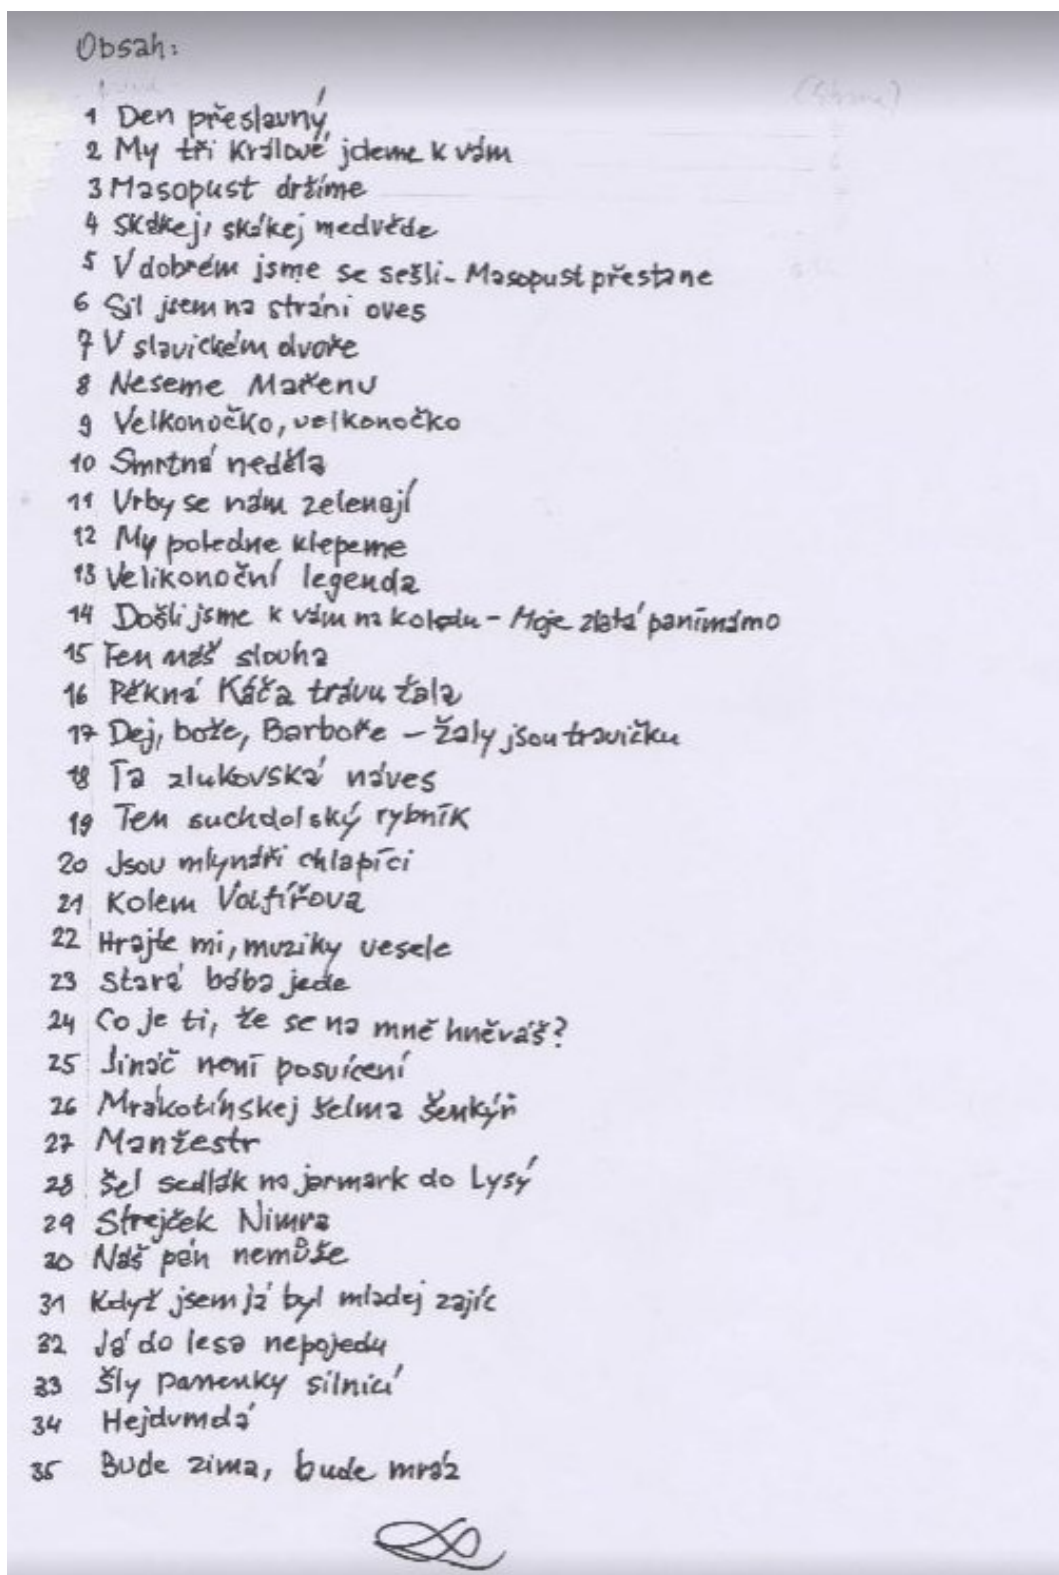 Obsah:
1 Den přeslavný
2 My tři Králové jdeme k vám
3 Masopust držíme
4 Skákej, skákej medvěde
5 V dobrém jsme se sešli - Masopust přestane
6 Sil jsem na stráni oves
7 V slavickém dvoře
8 Neseme Mařenu
9 Velkonočko, velkonočko
10 Smrtná neděla
11 Vrby se nám zelenají
12 My poledne klepeme
13 Velikonoční legenda
14 Došli jsme k vám na koledu - Moje zlatá panímámo
15 Ten náš slouha
16 Pěkná Káča trávu žala
17 Dej, bože, Barboře - žaly jsou travičku
18 Ta zlukovská náves
19 Ten suchdolský rybník
20 Jsou mlynáři chlapíci
21 Kolem Volfířova
22 Hrajte mi, muziky vesele
23 Stará bába jede
24 Co je ti, že se na mně hněváš?
25 Jináč není posvícení
26 Mrákotínskej šelma šenkýř
27 Manžestr
28 Šel sedlák na jarmark do Lysý
29 Strejček Nimra
30 Náš pán nemůže
31 Když jsem já byl mladej zajíc
32 Já do lesa nepojedu
33 Šly panenky silnicí
34 Hejdumdá
35 Bude zima, bude mráz